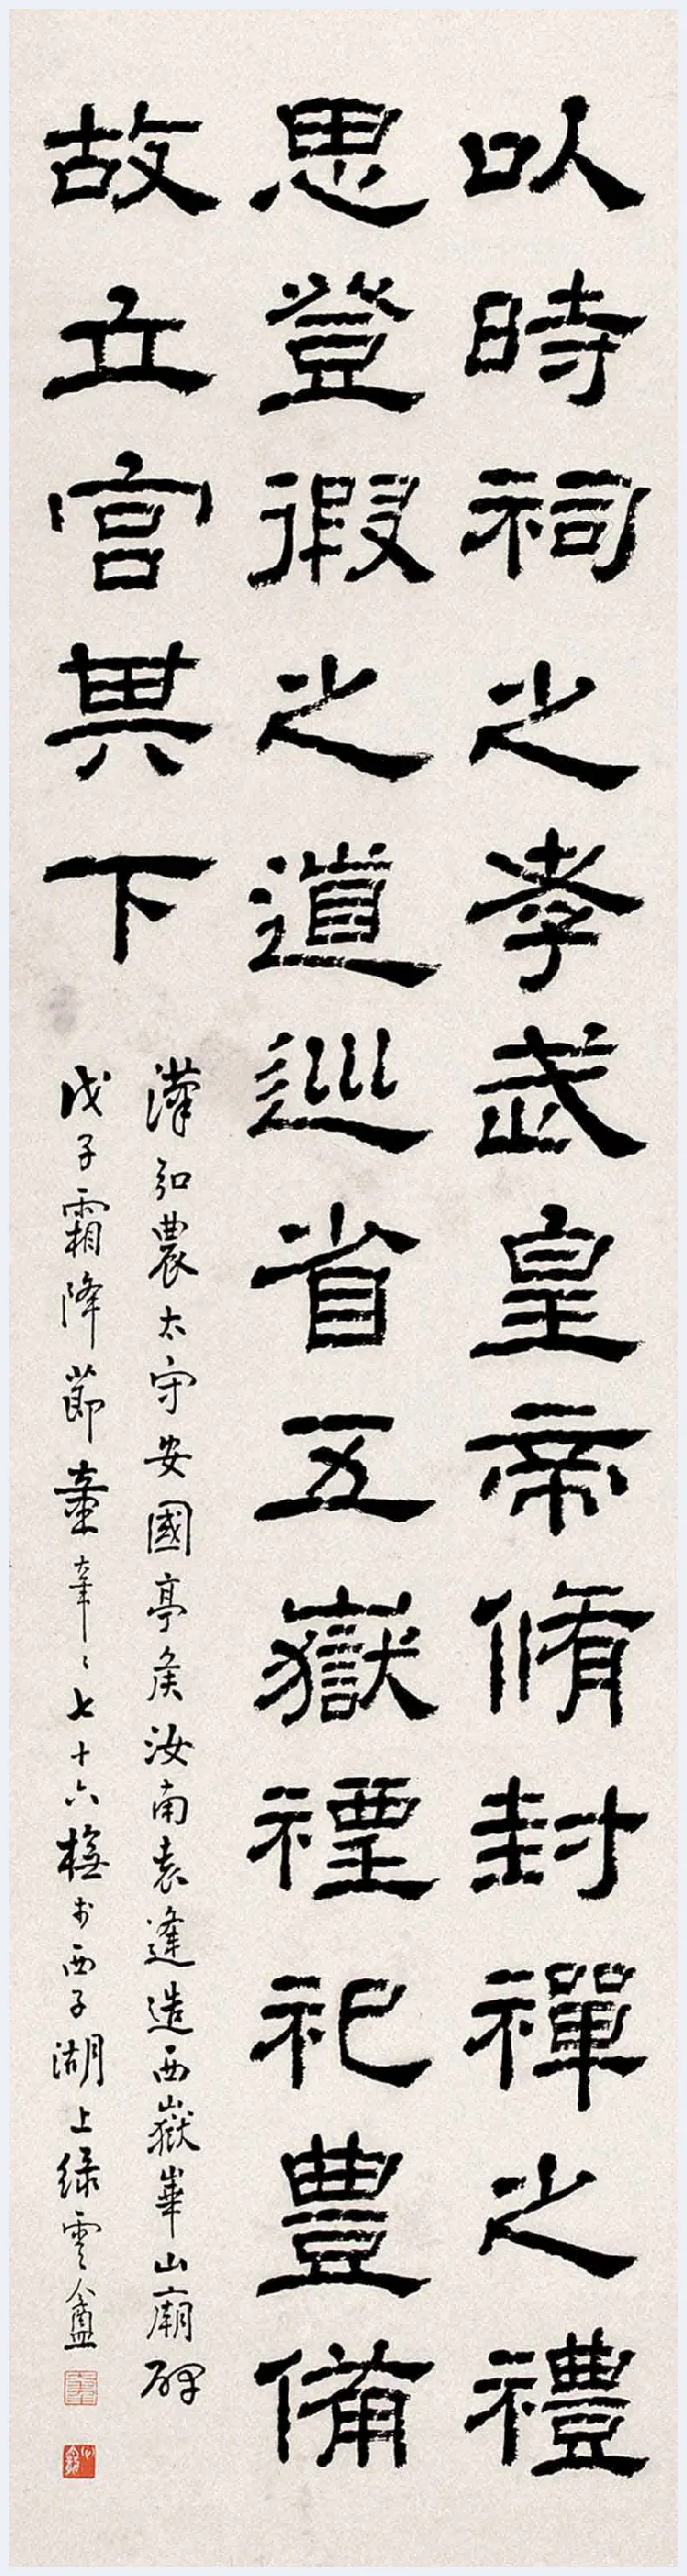 以時祠之孝武皇帝脩封禪之禮
思登徦之道巡省五嶽禋祀豊備
故立宮其下
漢弘農太守安國亭侯汝南袁逢造西嶽華山廟碑
戊子霜降節童年七十六橅於西子湖上綠雲盦